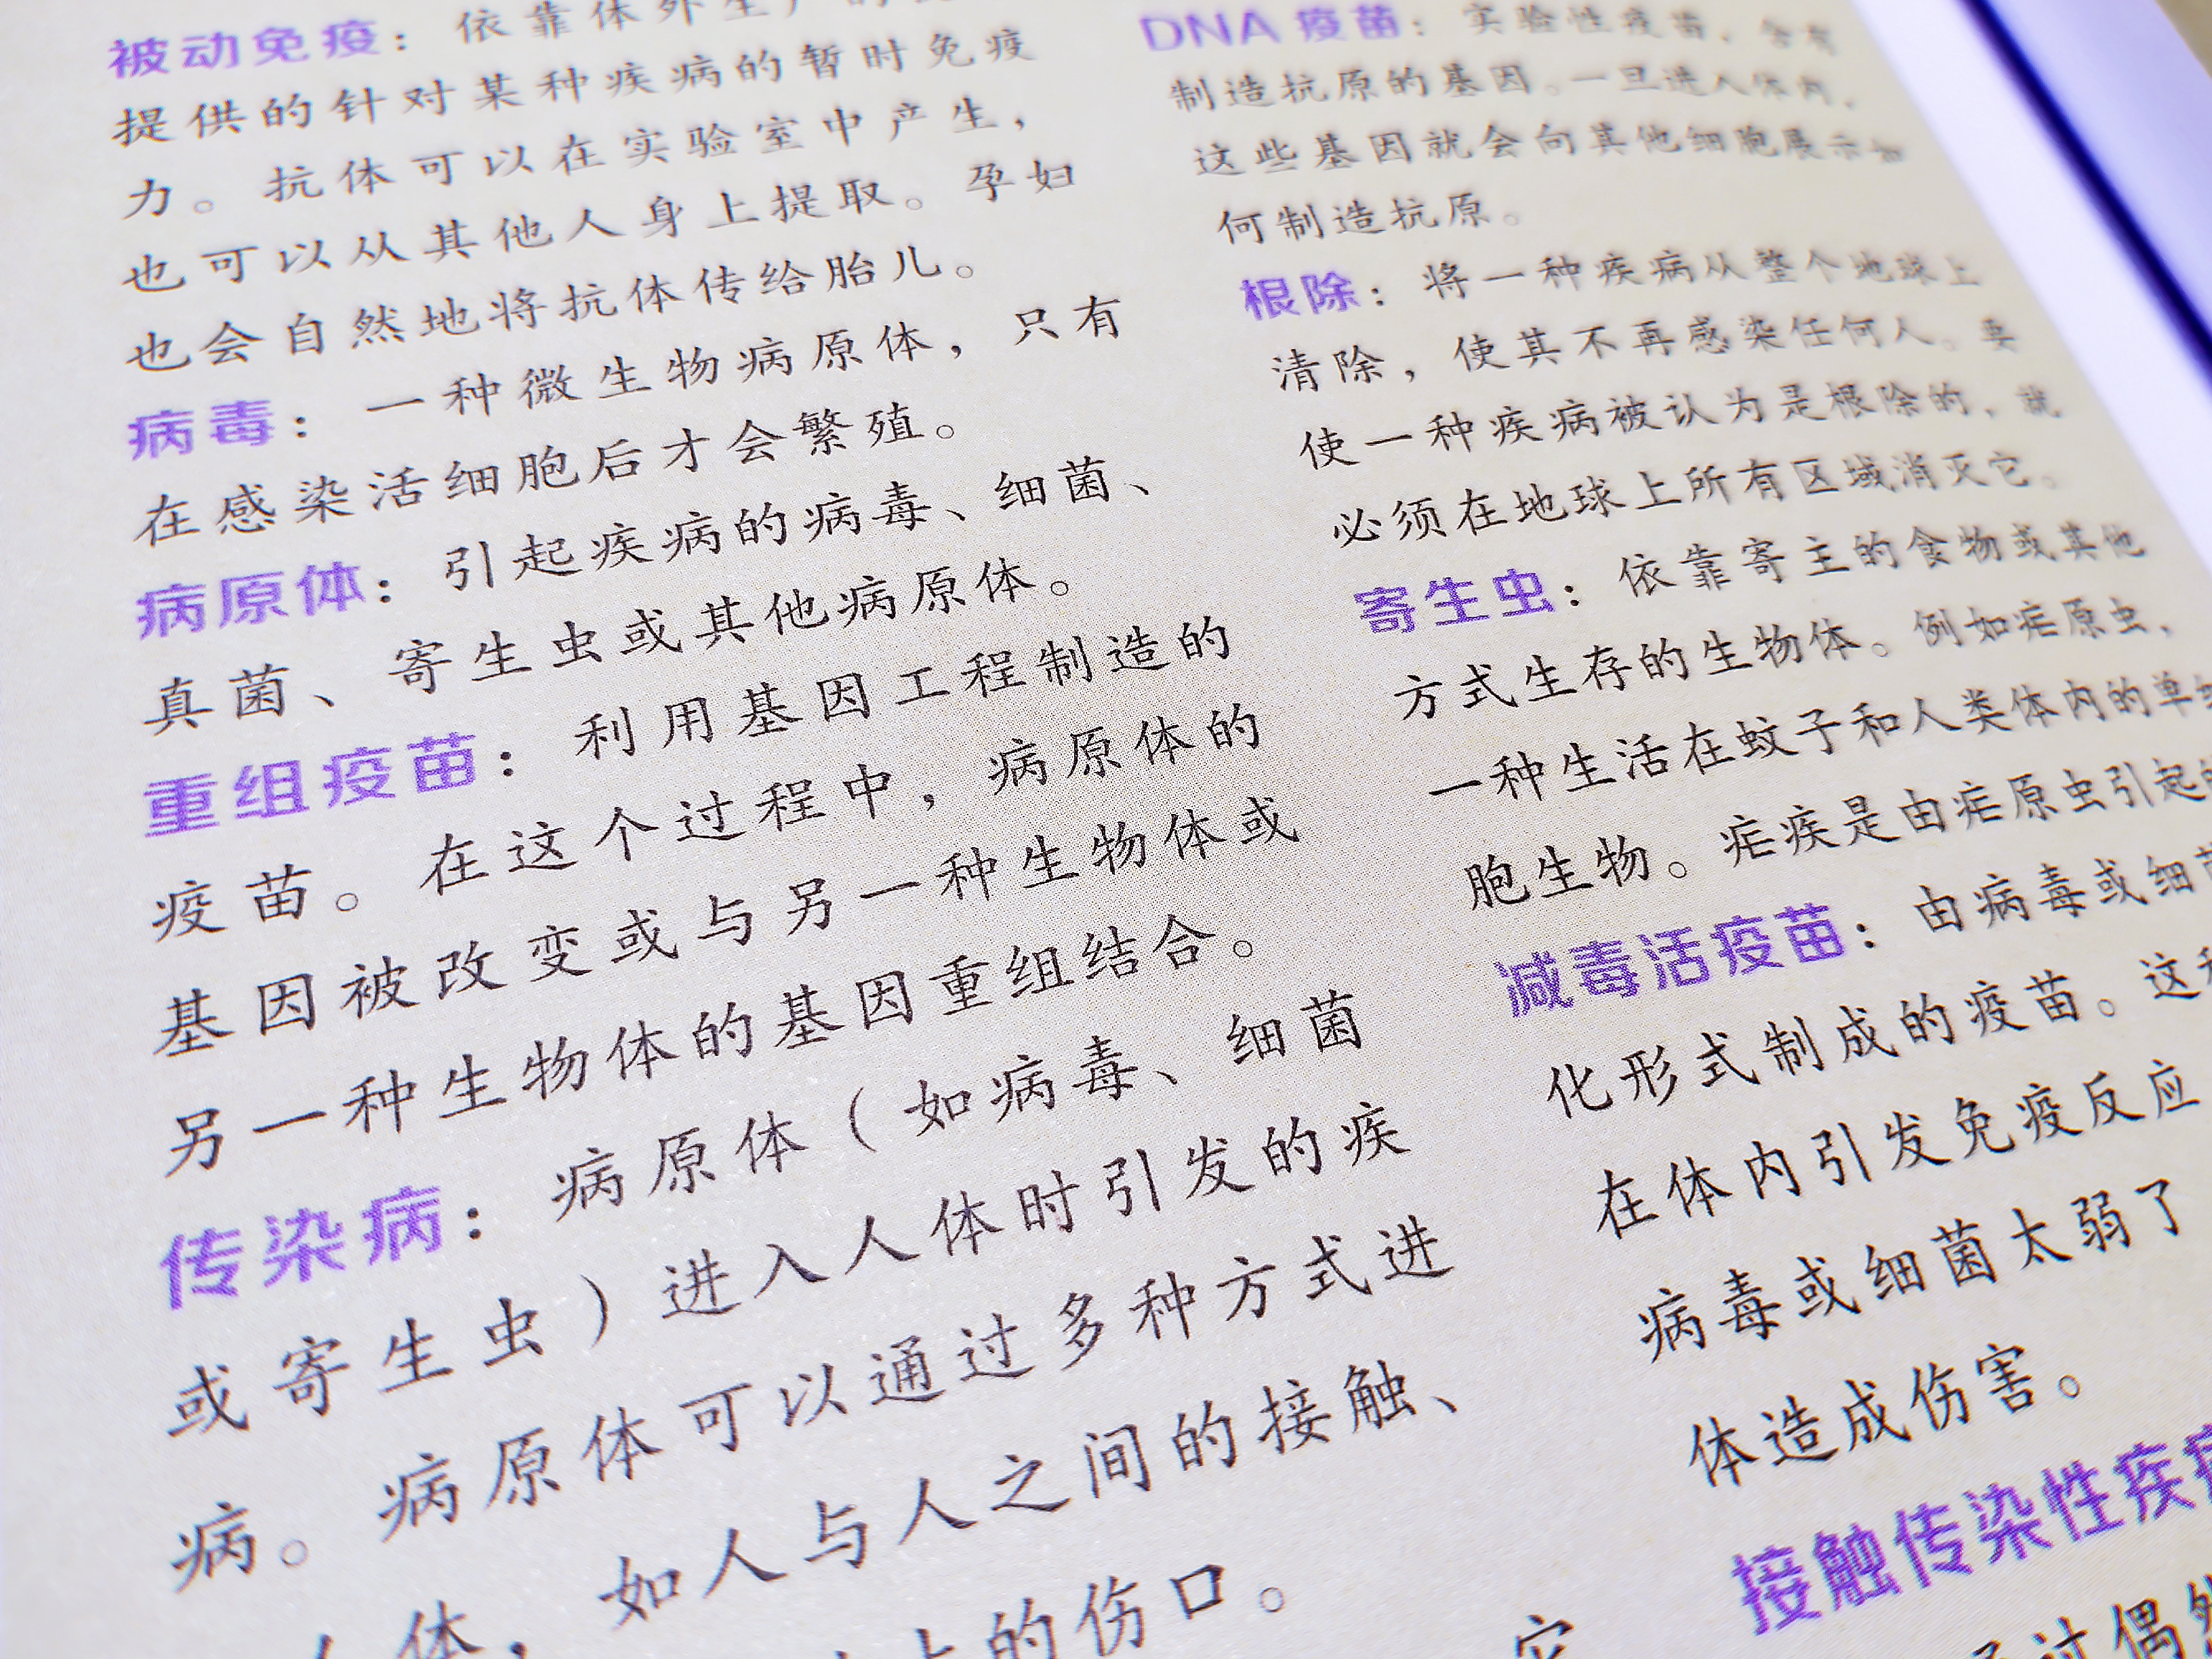 被动免疫：依靠体外生产的
提供的针对某种疾病的暂时免疫
力。抗体可以在实验室中产生，
也可以从其他人身上提取。孕妇
也会自然地将抗体传给胎儿。
病毒：一种微生物病原体，只有
在感染活细胞后才会繁殖。
病原体：引起疾病的病毒、细菌、
真菌、寄生虫或其他病原体。
重组疫苗：利用基因工程制造的
疫苗。在这个过程中，病原体的
基因被改变或与另一种生物体或
另一种生物体的基因重组结合。
传染病：病原体（如病毒、细菌
或寄生虫）进入人体时引发的疾
病。病原体可以通过多种方式进
人体，如人与人之间的接触、
上的伤口。
DNA 疫苗：实验性疫苗，含有
制造抗原的基因。一旦进入体内，
这些基因就会向其他细胞展示如
何制造抗原。
根除：将一种疾病从整个地球上
清除，使其不再感染任何人。要
使一种疾病被认为是根除的，就
必须在地球上所有区域消灭它。
寄生虫：依靠寄主的食物或其他
方式生存的生物体。例如疟原虫，
一种生活在蚊子和人类体内的单细
胞生物。疟疾是由疟原虫引起的
减毒活疫苗：由病毒或细菌
化形式制成的疫苗。这种
在体内引发免疫反应
病毒或细菌太弱了
体造成伤害。
接触传染性疾病
通过偶然